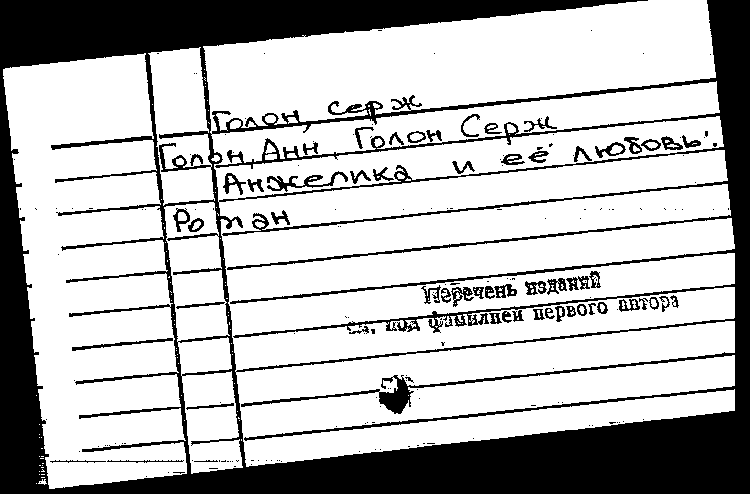 Голон, Серж
Голон, Анн, Голон Серж
Анжелика и её любовь:
Роман
Перечень изданий
см. под фамилией первого автора